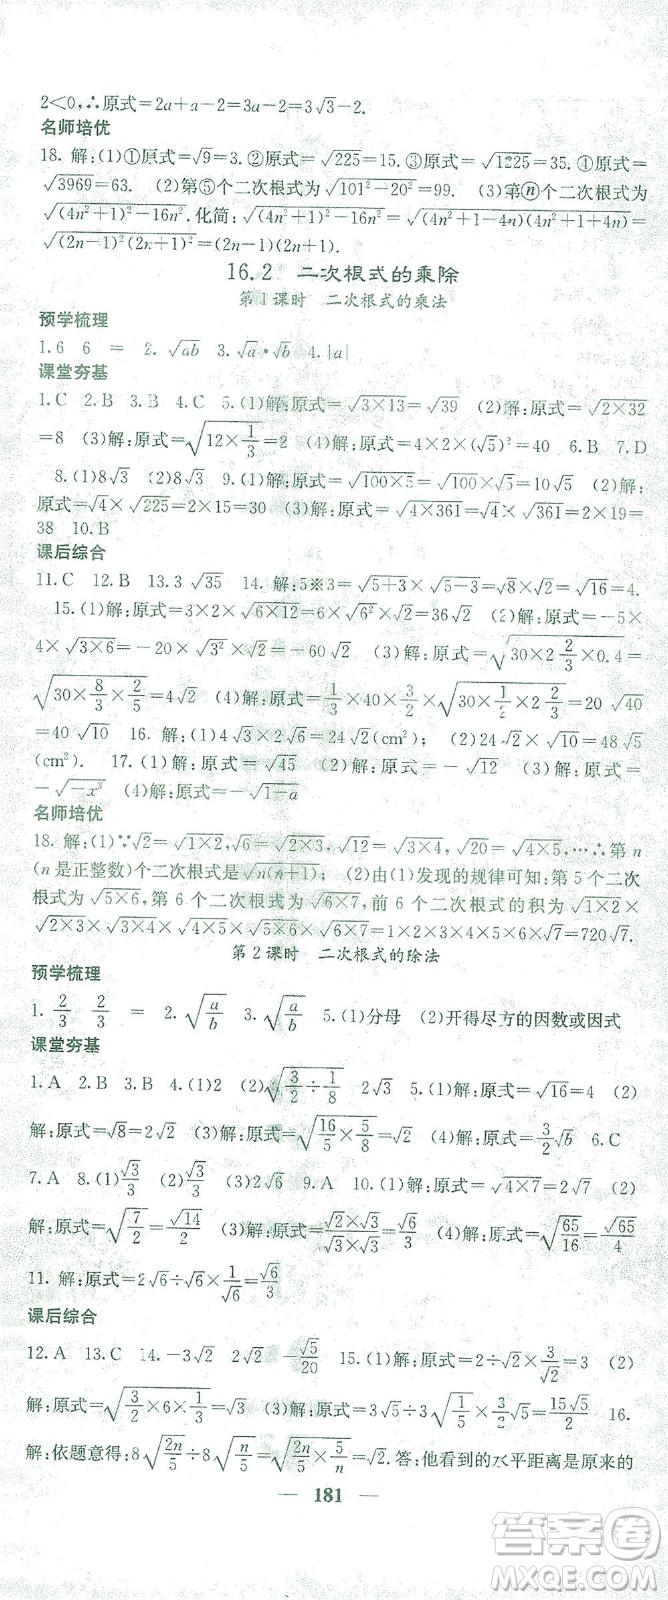 2<0,∴原式=2a+a-2=3a-2=3√3-2.
名师培优
18. 解:(1)①原式=√9=3. ②原式=√225=15. ③原式=√1225=35. ④原式=
√3969=63. (2)第⑤个二次根式为√(101²-20²)=99. (3)第ⓝ个二次根式为
√((4n²+1)²-16n²). 化简:√((4n²+1)²-16n²)=√((4n²+1-4n)(4n²+1+4n))=
√((2n-1)²(2n+1)²)=(2n-1)(2n+1).
16.2 二次根式的乘除
第1课时 二次根式的乘法
预学梳理
1.6 6 = 2.√ab 3.√a·√b 4.|a|
课堂夯基
1.C 2.B 3.B 4.C 5.(1)解:原式=√(3×13)=√39 (2)解:原式=√(2×32)
=8 (3)解:原式=√(12×1/3)=2 (4)解:原式=4×2×(√5)²=40 6.B 7.D
8.(1)8√3 (2)8√3 9.(1)解:原式=√(100×5)=√100×√5=10√5 (2)解:
原式=√4×√225=2×15=30 (3)解:原式=√(4×361)=√4×√361=2×19=
38 10.B
课后综合
11.C 12.B 13.3√35 14.解:5※3=√(5+3)×√(5-3)=√8×√2=√16=4.
15.(1)解:原式=3×2×√(6×12)=6×√(6²)×√2=36√2 (2)解:原式=-5×
4×√(3×6)=-20×√(3²)×√2=-60√2 (3)解:原式=√(30×2 2/3×0.4)=
√(30×8/3×2/5)=4√2 (4)解:原式=1/3×40×3/2×√(30×1/2×2 2/3)=20√40
=40√10 16.解:(1)4√3×2√6=24√2(cm²); (2)2√10×3√5=30√2
(cm²). 17.(1)解:原式=√45 (2)解:原式=-√12 (3)解:原式=
-√(-x³) (4)解:原式=-√(1-a)
名师培优
18. 解:(1)∵√2=√(1×2),√6=√(2×3),√12=√(3×4),√20=√(4×5),…∴第n
(n是正整数)个二次根式是√(n(n+1)); (2)由(1)发现的规律可知:第5个二次
根式为√(5×6),第6个二次根式为√(6×7),前6个二次根式的积为√(1×2)×
√(2×3)×√(3×4)×√(4×5)×√(5×6)×√(6×7)=1×2×3×4×5×6×√7=720√7.
第2课时 二次根式的除法
预学梳理
1.2/3 2/3 = 2.√(a/b) 3.√(a/b) 5.(1)分母 (2)开得尽方的因数或因式
课堂夯基
1.A 2.B 3.B 4.(2)√(3/2÷1/8) 2√3 5.(1)解:原式=√16=4 (2)
解:原式=√8=2√2 (3)解:原式=√(16/5×5/8)=√2 (4)解:原式=3/2√b 6.C
7.A 8.(1)√3/3 (2)√3 (3)2√6 9.A 10.(1)解:原式=√(4×7)=2√7 (2)
解:原式=√(7/2)=√14/2 (3)解:原式=(√2×√3)/(√3×√3)=√6/3 (4)解:原式=√(65/16)=√65/4
11.解:原式=2√6÷√6×1/√6=√6/3
课后综合
12.A 13.C 14.-3√2 2√2 -√5/20 15.(1)解:原式=2÷√2×3/√2=3 (2)
解:原式=√(3/2×6×1/3)=√3 (3)解:原式=3√5÷3√(1/5)×√(3/2)=15√5/2 16.
解:依题意得:8√(2n/5)÷8√(n/5)=√(2n/5×5/n)=√2.答:他看到的水平距离是原来的
— 181 —
答案圈
MXQE.COM